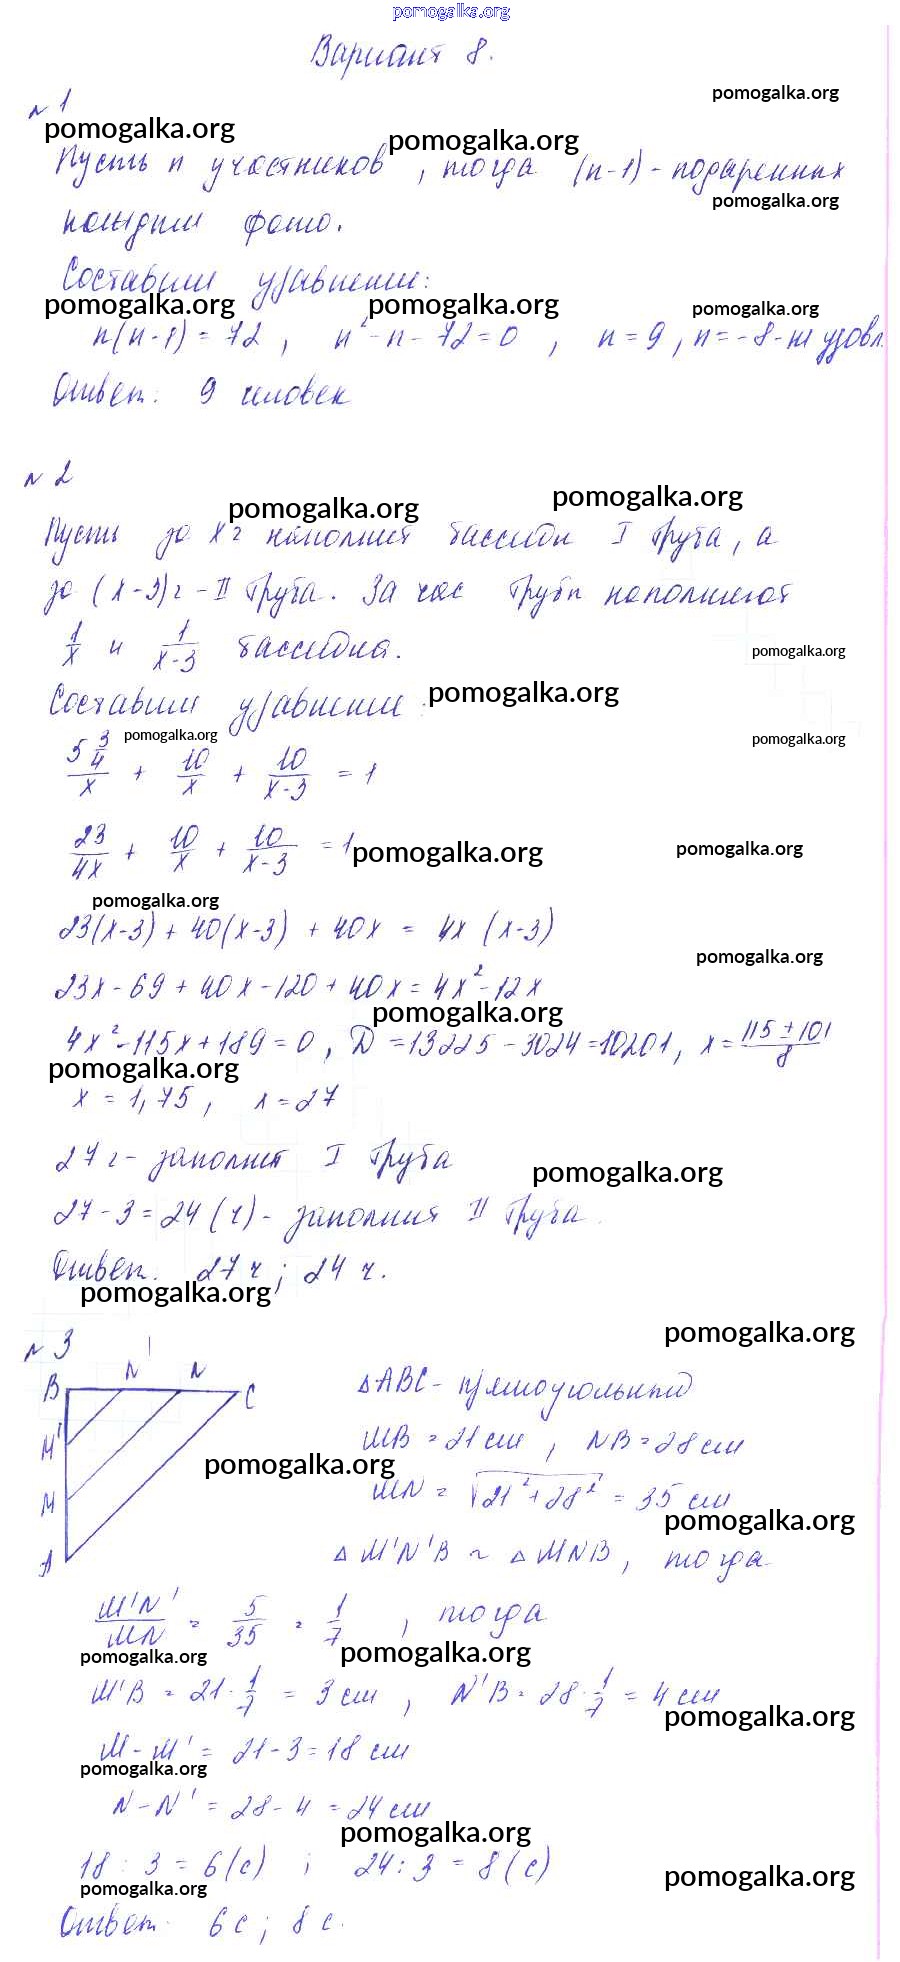 pomogalka.org
Вариант 8.
№ 1
pomogalka.org
pomogalka.org pomogalka.org
Пусть n участников, тогда (n-1) - подаренных
pomogalka.org
каждым фото.
Составим уравнение:
pomogalka.org pomogalka.org pomogalka.org
n(n-1) = 72, n² - n - 72 = 0, n = 9, n = -8 - не удовл.
Ответ: 9 человек
№ 2
pomogalka.org pomogalka.org
Пусть за x ч наполнит бассейн I труба, а
за (x-3) ч - II труба. За час трубы наполняют
1/x и 1/(x-3) бассейна.
pomogalka.org
Составим уравнение:
pomogalka.org
pomogalka.org pomogalka.org
5 3/4 / x + 10/x + 10/(x-3) = 1
23/4x + 10/x + 10/(x-3) = 1
pomogalka.org pomogalka.org
pomogalka.org
23(x-3) + 40(x-3) + 40x = 4x(x-3)
pomogalka.org
23x - 69 + 40x - 120 + 40x = 4x² - 12x
pomogalka.org
4x² - 115x + 189 = 0, D = 13225 - 3024 = 10201, x = (115 ± 101)/8
pomogalka.org
x = 1,75, x = 27
27 ч - заполнит I труба
pomogalka.org
27 - 3 = 24 (ч) - заполнит II труба.
Ответ. 27 ч; 24 ч.
pomogalka.org
№ 3
pomogalka.org
B N' N C
M'
M
A
△ABC - прямоугольный
MB = 21 см, NB = 28 см
pomogalka.org
MN = √(21² + 28²) = 35 см
pomogalka.org
△ M'N'B ~ △ MNB, тогда
M'N'/MN = 5/35 = 1/7, тогда
pomogalka.org pomogalka.org
M'B = 21 · 1/7 = 3 см, N'B = 28 · 1/7 = 4 см
pomogalka.org
M - M' = 21 - 3 = 18 см
pomogalka.org
N - N' = 28 - 4 = 24 см
pomogalka.org
18 : 3 = 6 (с) ; 24 : 3 = 8 (с)
pomogalka.org pomogalka.org
Ответ. 6 с; 8 с.